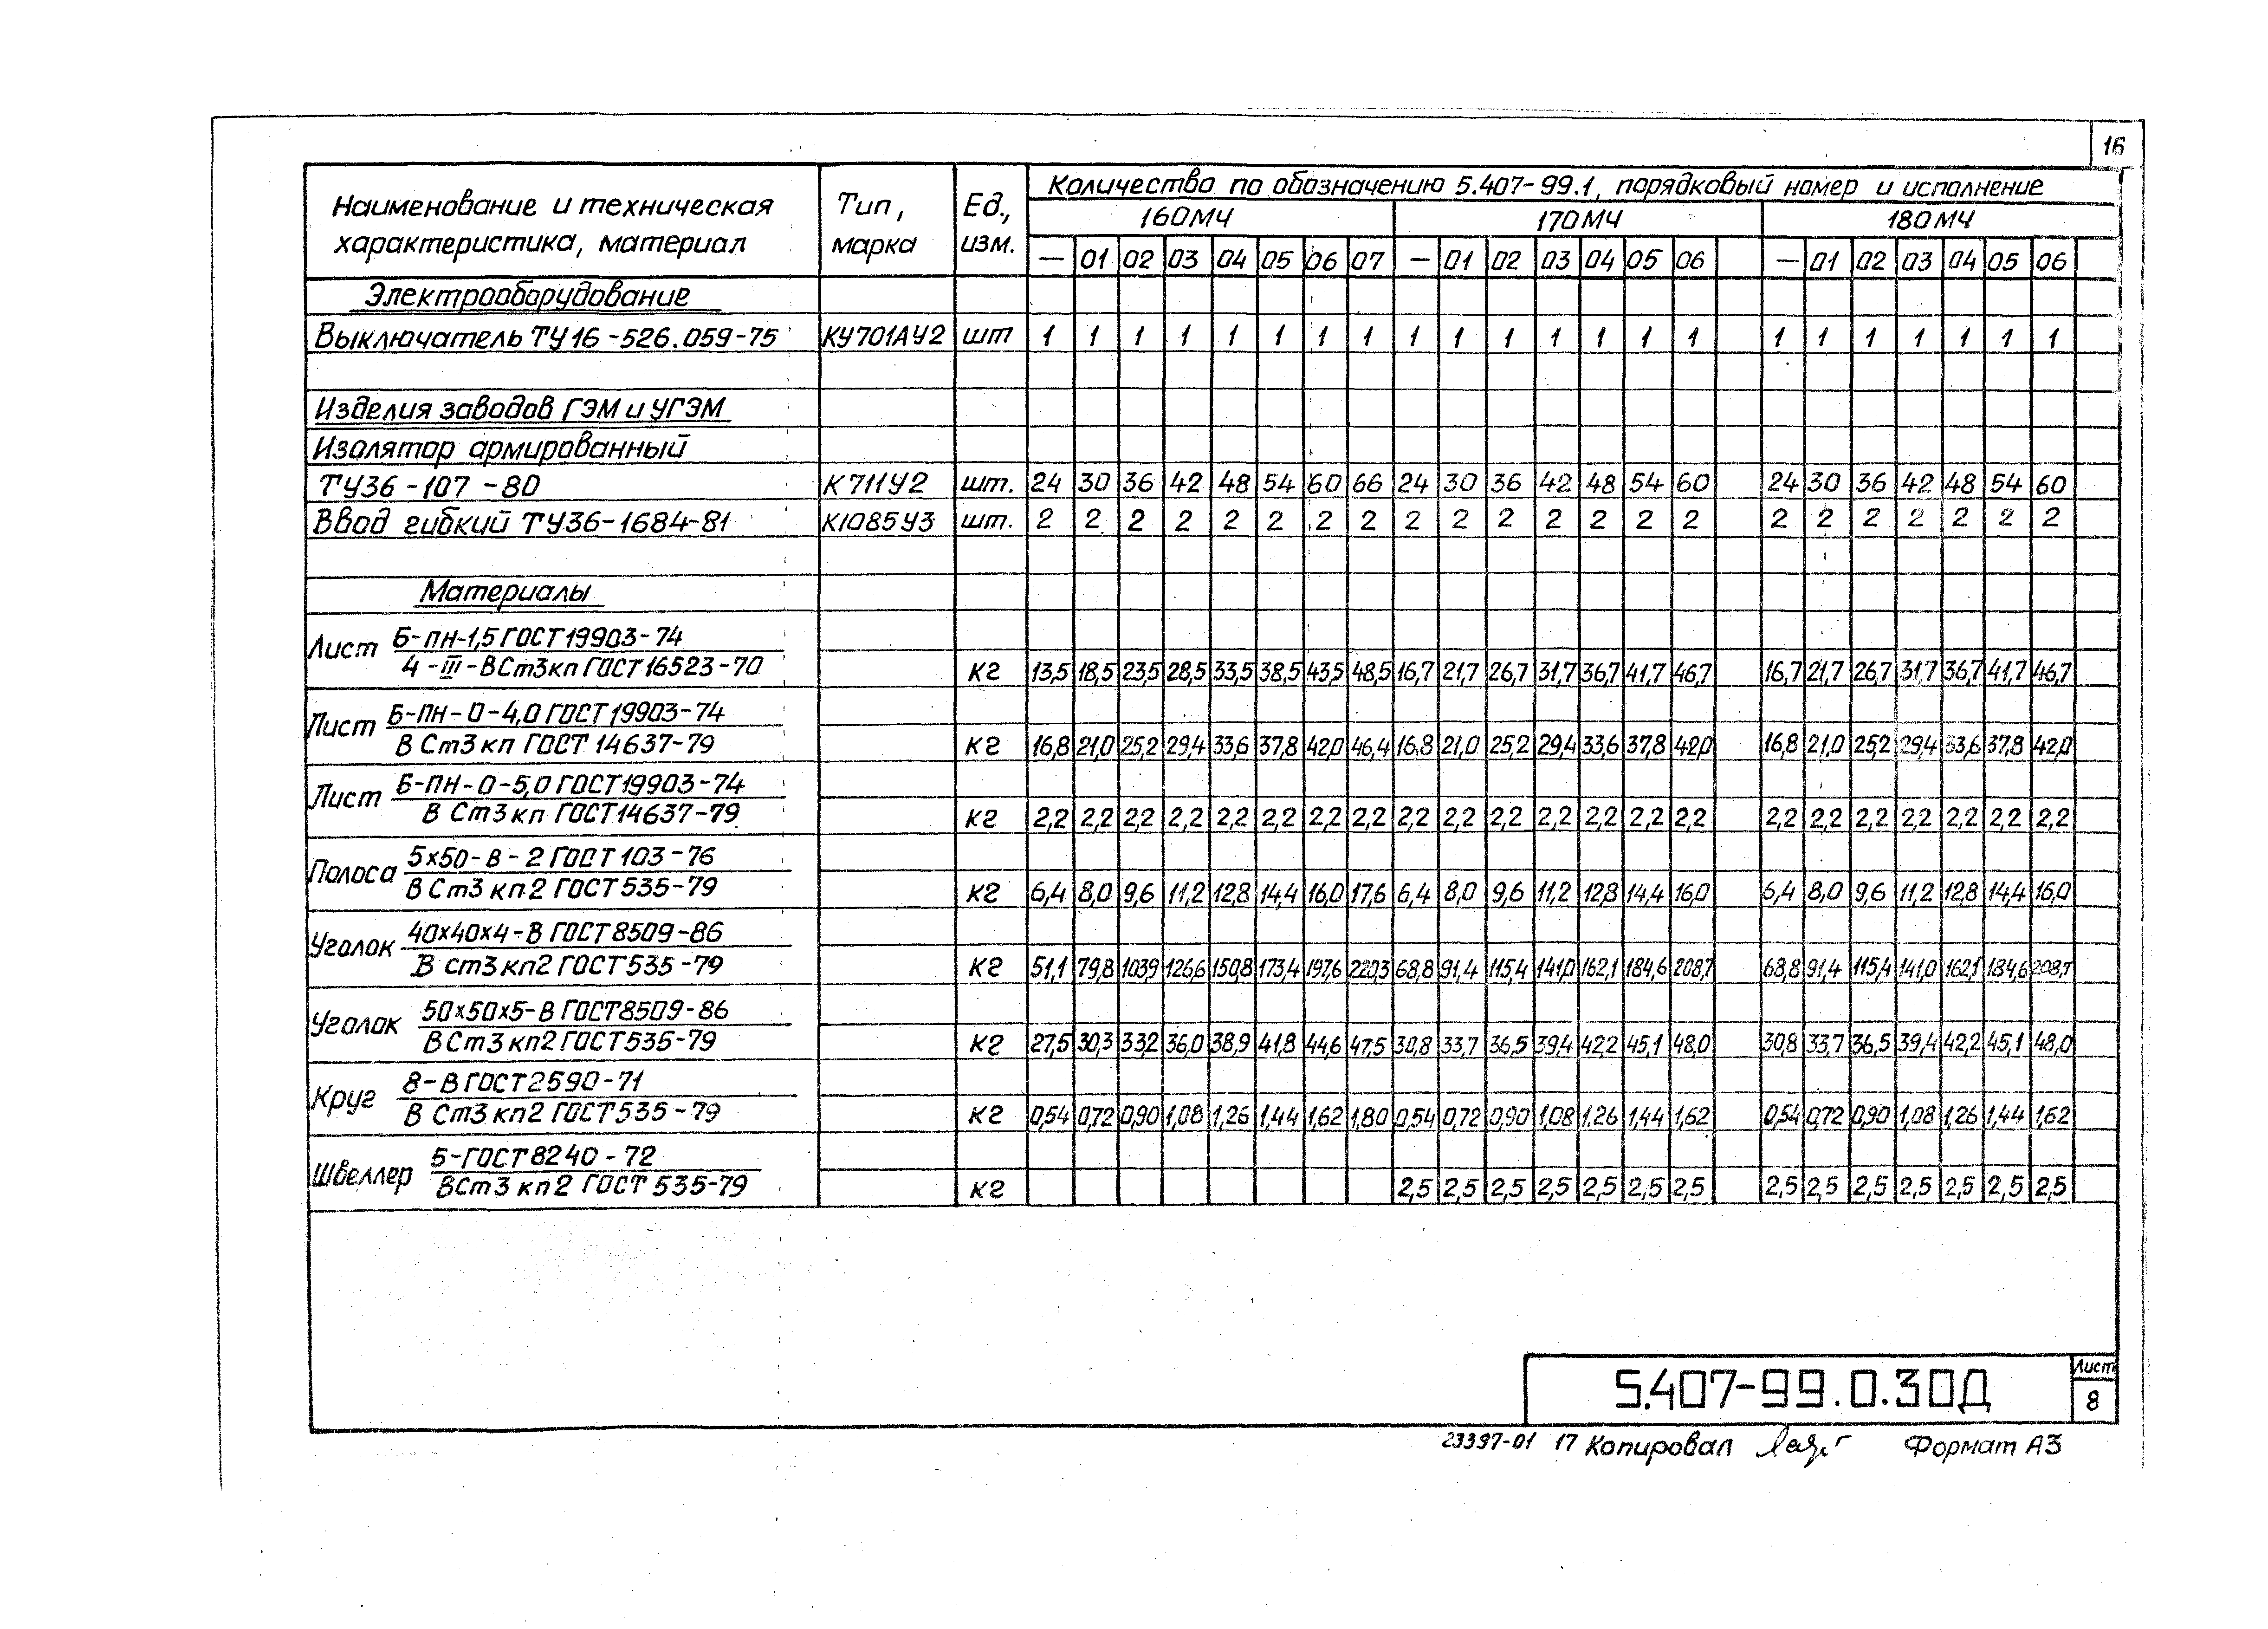 16
Наименование и техническая характеристика, материал
Тип, марка
Ед., изм.
Количества по обозначению 5.407-99.1, порядковый номер и исполнение
160МЧ 170МЧ 180МЧ
— 01 02 03 04 05 06 07 — 01 02 03 04 05 06 — 01 02 03 04 05 06
Электрооборудование
Выключатель ТУ16-526.059-75 КУ701АУ2 шт 1 1 1 1 1 1 1 1 1 1 1 1 1 1 1 1 1 1 1 1 1 1
Изделия заводов ГЭМ и УГЭМ
Изолятор армированный
ТУ36-107-80 К711У2 шт. 24 30 36 42 48 54 60 66 24 30 36 42 48 54 60 24 30 36 42 48 54 60
Ввод гибкий ТУ36-1684-81 К1085У3 шт. 2 2 2 2 2 2 2 2 2 2 2 2 2 2 2 2 2 2 2 2 2 2
Материалы
Лист Б-ПН-1,5 ГОСТ19903-74
4-III-ВСт3кп ГОСТ16523-70 кг 13,5 18,5 23,5 28,5 33,5 38,5 43,5 48,5 16,7 21,7 26,7 31,7 36,7 41,7 46,7 16,7 21,7 26,7 31,7 36,7 41,7 46,7
Лист Б-ПН-О-4,0 ГОСТ19903-74
В Ст3кп ГОСТ 14637-79 кг 16,8 21,0 25,2 29,4 33,6 37,8 42,0 46,4 16,8 21,0 25,2 29,4 33,6 37,8 42,0 16,8 21,0 25,2 29,4 33,6 37,8 42,0
Лист Б-ПН-О-5,0 ГОСТ19903-74
В Ст3кп ГОСТ14637-79 кг 2,2 2,2 2,2 2,2 2,2 2,2 2,2 2,2 2,2 2,2 2,2 2,2 2,2 2,2 2,2 2,2 2,2 2,2 2,2 2,2 2,2 2,2
Полоса 5х50-В-2 ГОСТ103-76
В Ст3 кп2 ГОСТ535-79 кг 6,4 8,0 9,6 11,2 12,8 14,4 16,0 17,6 6,4 8,0 9,6 11,2 12,8 14,4 16,0 6,4 8,0 9,6 11,2 12,8 14,4 16,0
Уголок 40х40х4-В ГОСТ8509-86
В ст3кп2 ГОСТ535-79 кг 51,1 79,8 103,9 126,6 150,8 173,4 197,6 220,3 68,8 91,4 115,4 141,0 162,1 184,6 208,7 68,8 91,4 115,4 141,0 162,1 184,6 208,7
Уголок 50х50х5-В ГОСТ8509-86
ВСт3 кп2 ГОСТ535-79 кг 27,5 30,3 33,2 36,0 38,9 41,8 44,6 47,5 30,8 33,7 36,5 39,4 42,2 45,1 48,0 30,8 33,7 36,5 39,4 42,2 45,1 48,0
Круг 8-В ГОСТ2590-71
В Ст3 кп2 ГОСТ535-79 кг 0,54 0,72 0,90 1,08 1,26 1,44 1,62 1,80 0,54 0,72 0,90 1,08 1,26 1,44 1,62 0,54 0,72 0,90 1,08 1,26 1,44 1,62
Швеллер 5-ГОСТ8240-72
ВСт3 кп2 ГОСТ 535-79 кг 2,5 2,5 2,5 2,5 2,5 2,5 2,5 2,5 2,5 2,5 2,5 2,5 2,5 2,5
5.407-99.0.30Д
Лист
8
23397-01 17 Копировал Формат А3